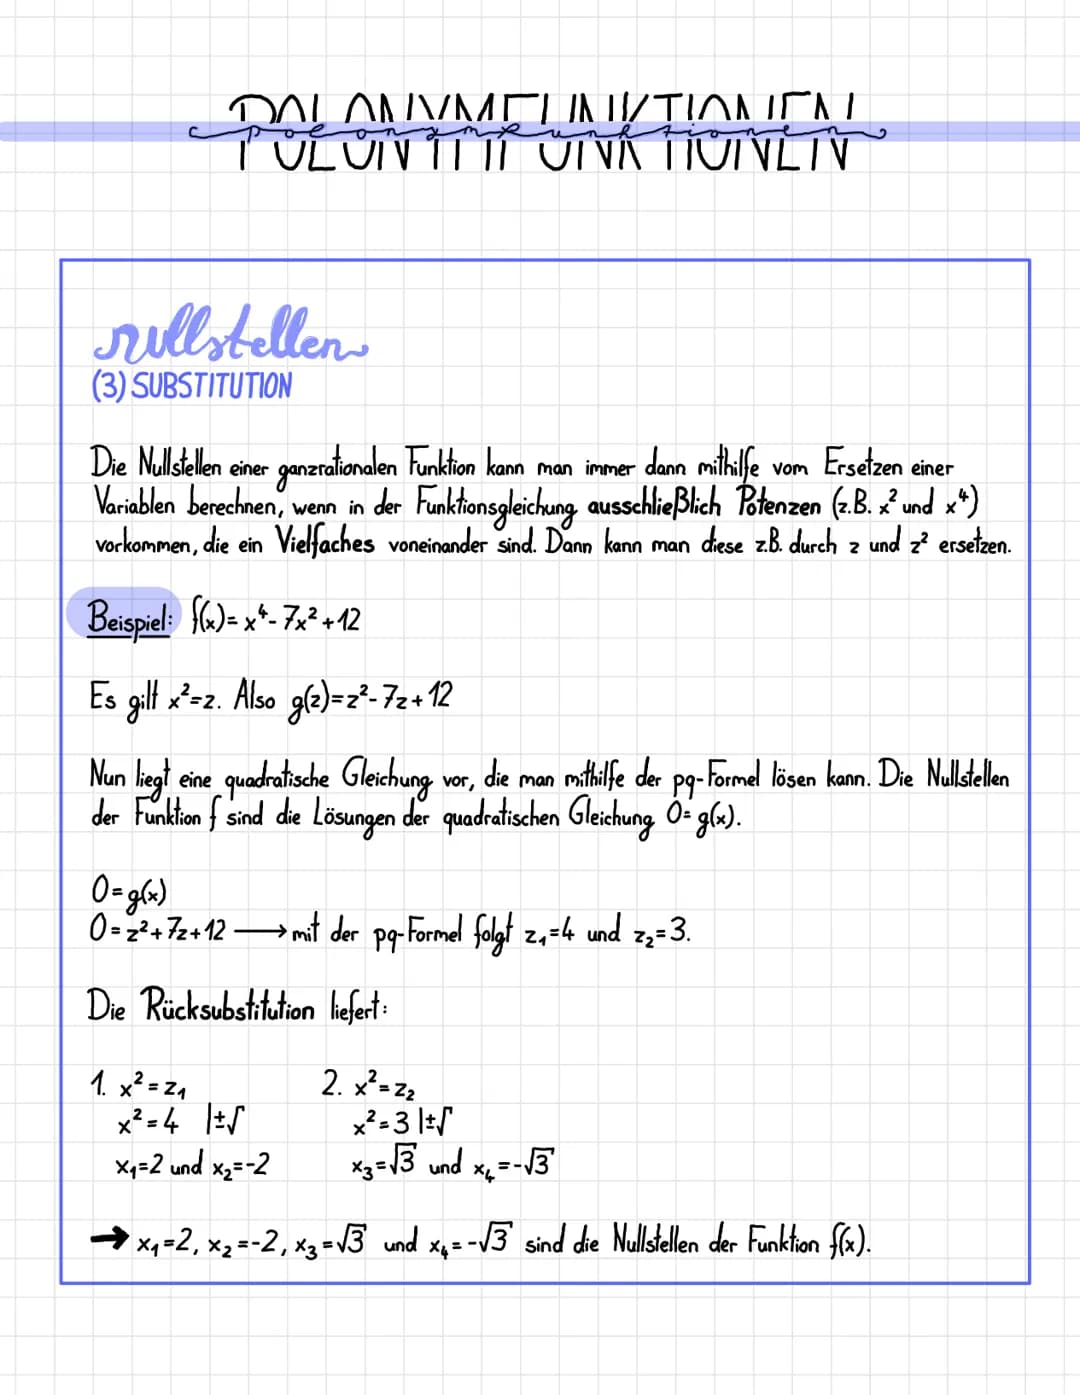 POLONYMFUNKTIONEN
polonymfunktionen
nullstellen
(3) SUBSTITUTION
Die Nullstellen einer ganzrationalen Funktion kann man immer dann mithilfe vom Ersetzen einer
Variablen berechnen, wenn in der Funktionsgleichung ausschließlich Potenzen (z.B. x² und x⁴)
vorkommen, die ein Vielfaches voneinander sind. Dann kann man diese z.B. durch z und z² ersetzen.
Beispiel: f(x)= x⁴- 7x² + 12
Es gilt x²=z. Also g(z)=z²-7z+12
Nun liegt eine quadratische Gleichung vor, die man mithilfe der pq-Formel lösen kann. Die Nullstellen
der Funktion f sind die Lösungen der quadratischen Gleichung 0= g(x).
0=g(x)
0=z²+7z+12 → mit der pq-Formel folgt z₁=4 und z₂=3.
Die Rücksubstitution liefert:
1. x²=z₁ 2. x²=z₂
x²=4 |±√ x²=3 |±√
x₁=2 und x₂=-2 x₃=√3 und x₄=-√3
→ x₁=2, x₂=-2, x₃=√3 und x₄=-√3 sind die Nullstellen der Funktion f(x).